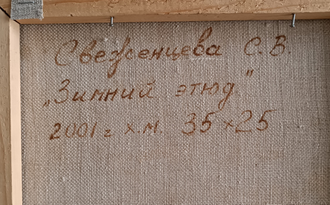 Свеженцева С.В.
„Зимний этюд."
2001 г х.м. 35×25